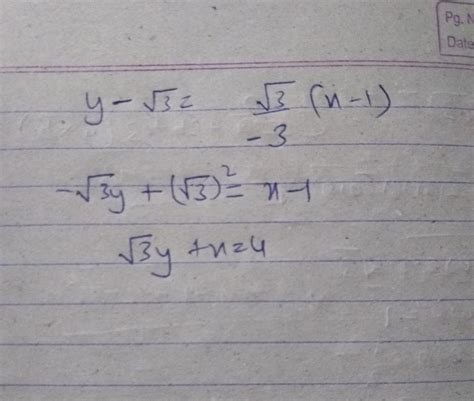 Pg. N
Date
y - √3 = √3/-3 (x-1)
-√3y + (√3)² = x-1
√3y + x = 4